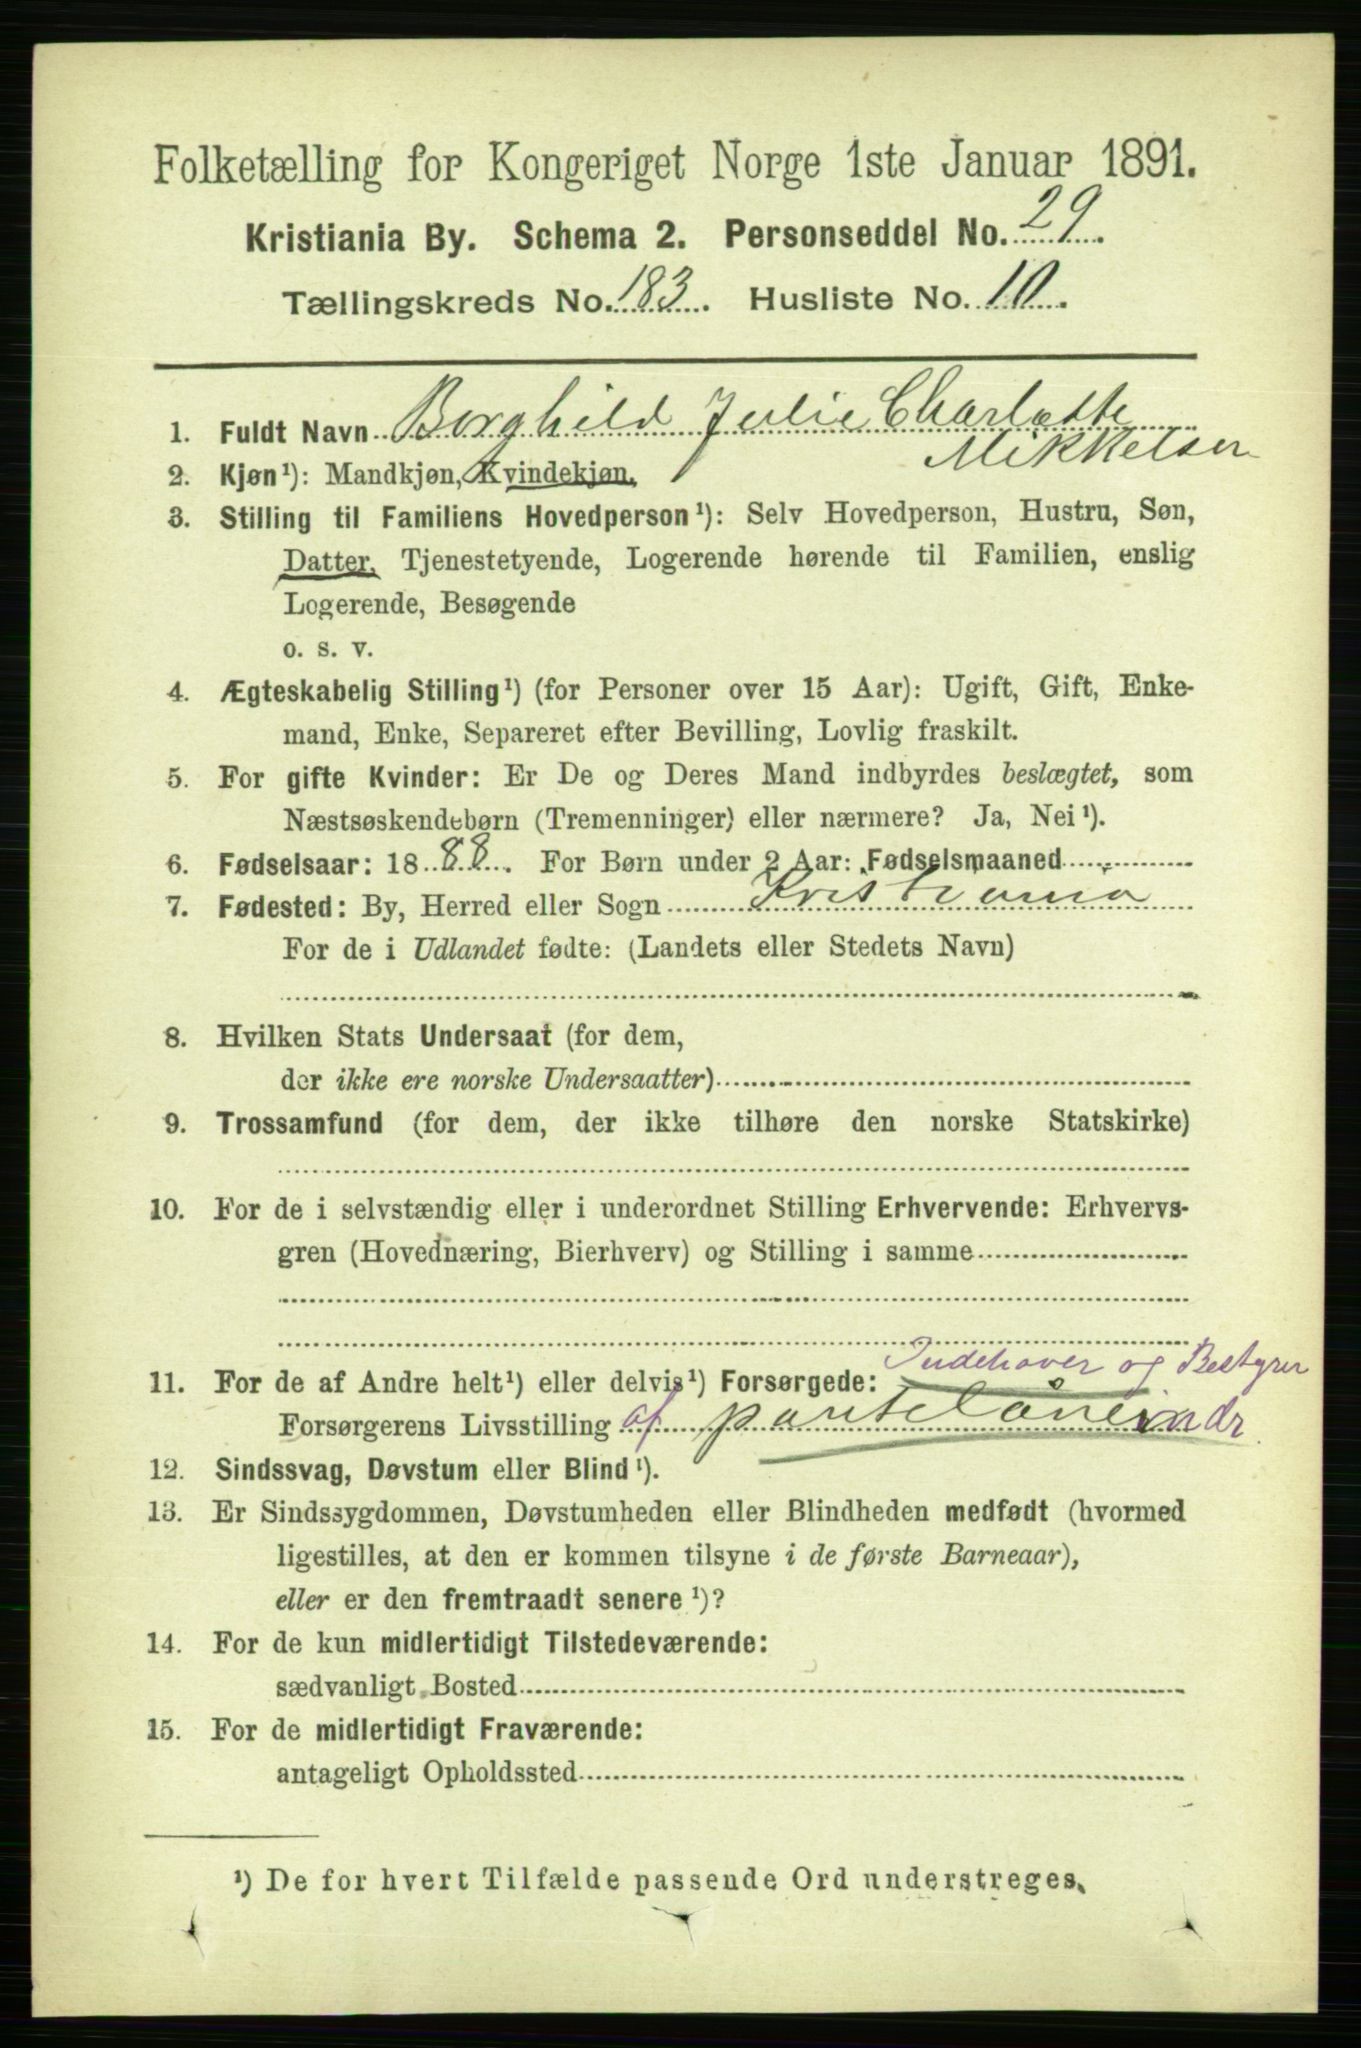 Folketælling for Kongeriget Norge 1ste Januar 1891.
Kristiania By. Schema 2. Personseddel No. 29.
Tællingskreds No. 183. Husliste No. 10.
1. Fuldt Navn Borghild Julie Charlotte
Mikkelsen
2. Kjøn¹): Mandkjøn, Kvindekjøn.
3. Stilling til Familiens Hovedperson¹): Selv Hovedperson, Hustru, Søn,
Datter, Tjenestetyende, Logerende hørende til Familien, enslig
Logerende, Besøgende
o. s. v.
4. Ægteskabelig Stilling¹) (for Personer over 15 Aar): Ugift, Gift, Enke-
mand, Enke, Separeret efter Bevilling, Lovlig fraskilt.
5. For gifte Kvinder: Er De og Deres Mand indbyrdes beslægtet, som
Næstsøskendebørn (Tremenninger) eller nærmere? Ja, Nei¹).
6. Fødselsaar: 1888. For Børn under 2 Aar: Fødselsmaaned
7. Fødested: By, Herred eller Sogn Kristiania
For de i Udlandet fødte: (Landets eller Stedets Navn)
8. Hvilken Stats Undersaat (for dem,
der ikke ere norske Undersaatter)
9. Trossamfund (for dem, der ikke tilhøre den norske Statskirke)
10. For de i selvstændig eller i underordnet Stilling Erhvervende: Erhvervs-
gren (Hovednæring, Bierhverv) og Stilling i samme
Indehaver og Bestyrer
11. For de af Andre helt¹) eller delvis¹) Forsørgede:
Forsørgerens Livsstilling af panteláneindr
12. Sindssvag, Døvstum eller Blind¹).
13. Er Sindssygdommen, Døvstumheden eller Blindheden medfødt (hvormed
ligestilles, at den er kommen tilsyne i de første Barneaar),
eller er den fremtraadt senere¹)?
14. For de kun midlertidigt Tilstedeværende:
sædvanligt Bosted
15. For de midlertidigt Fraværende:
antageligt Opholdssted
¹) De for hvert Tilfælde passende Ord understreges.